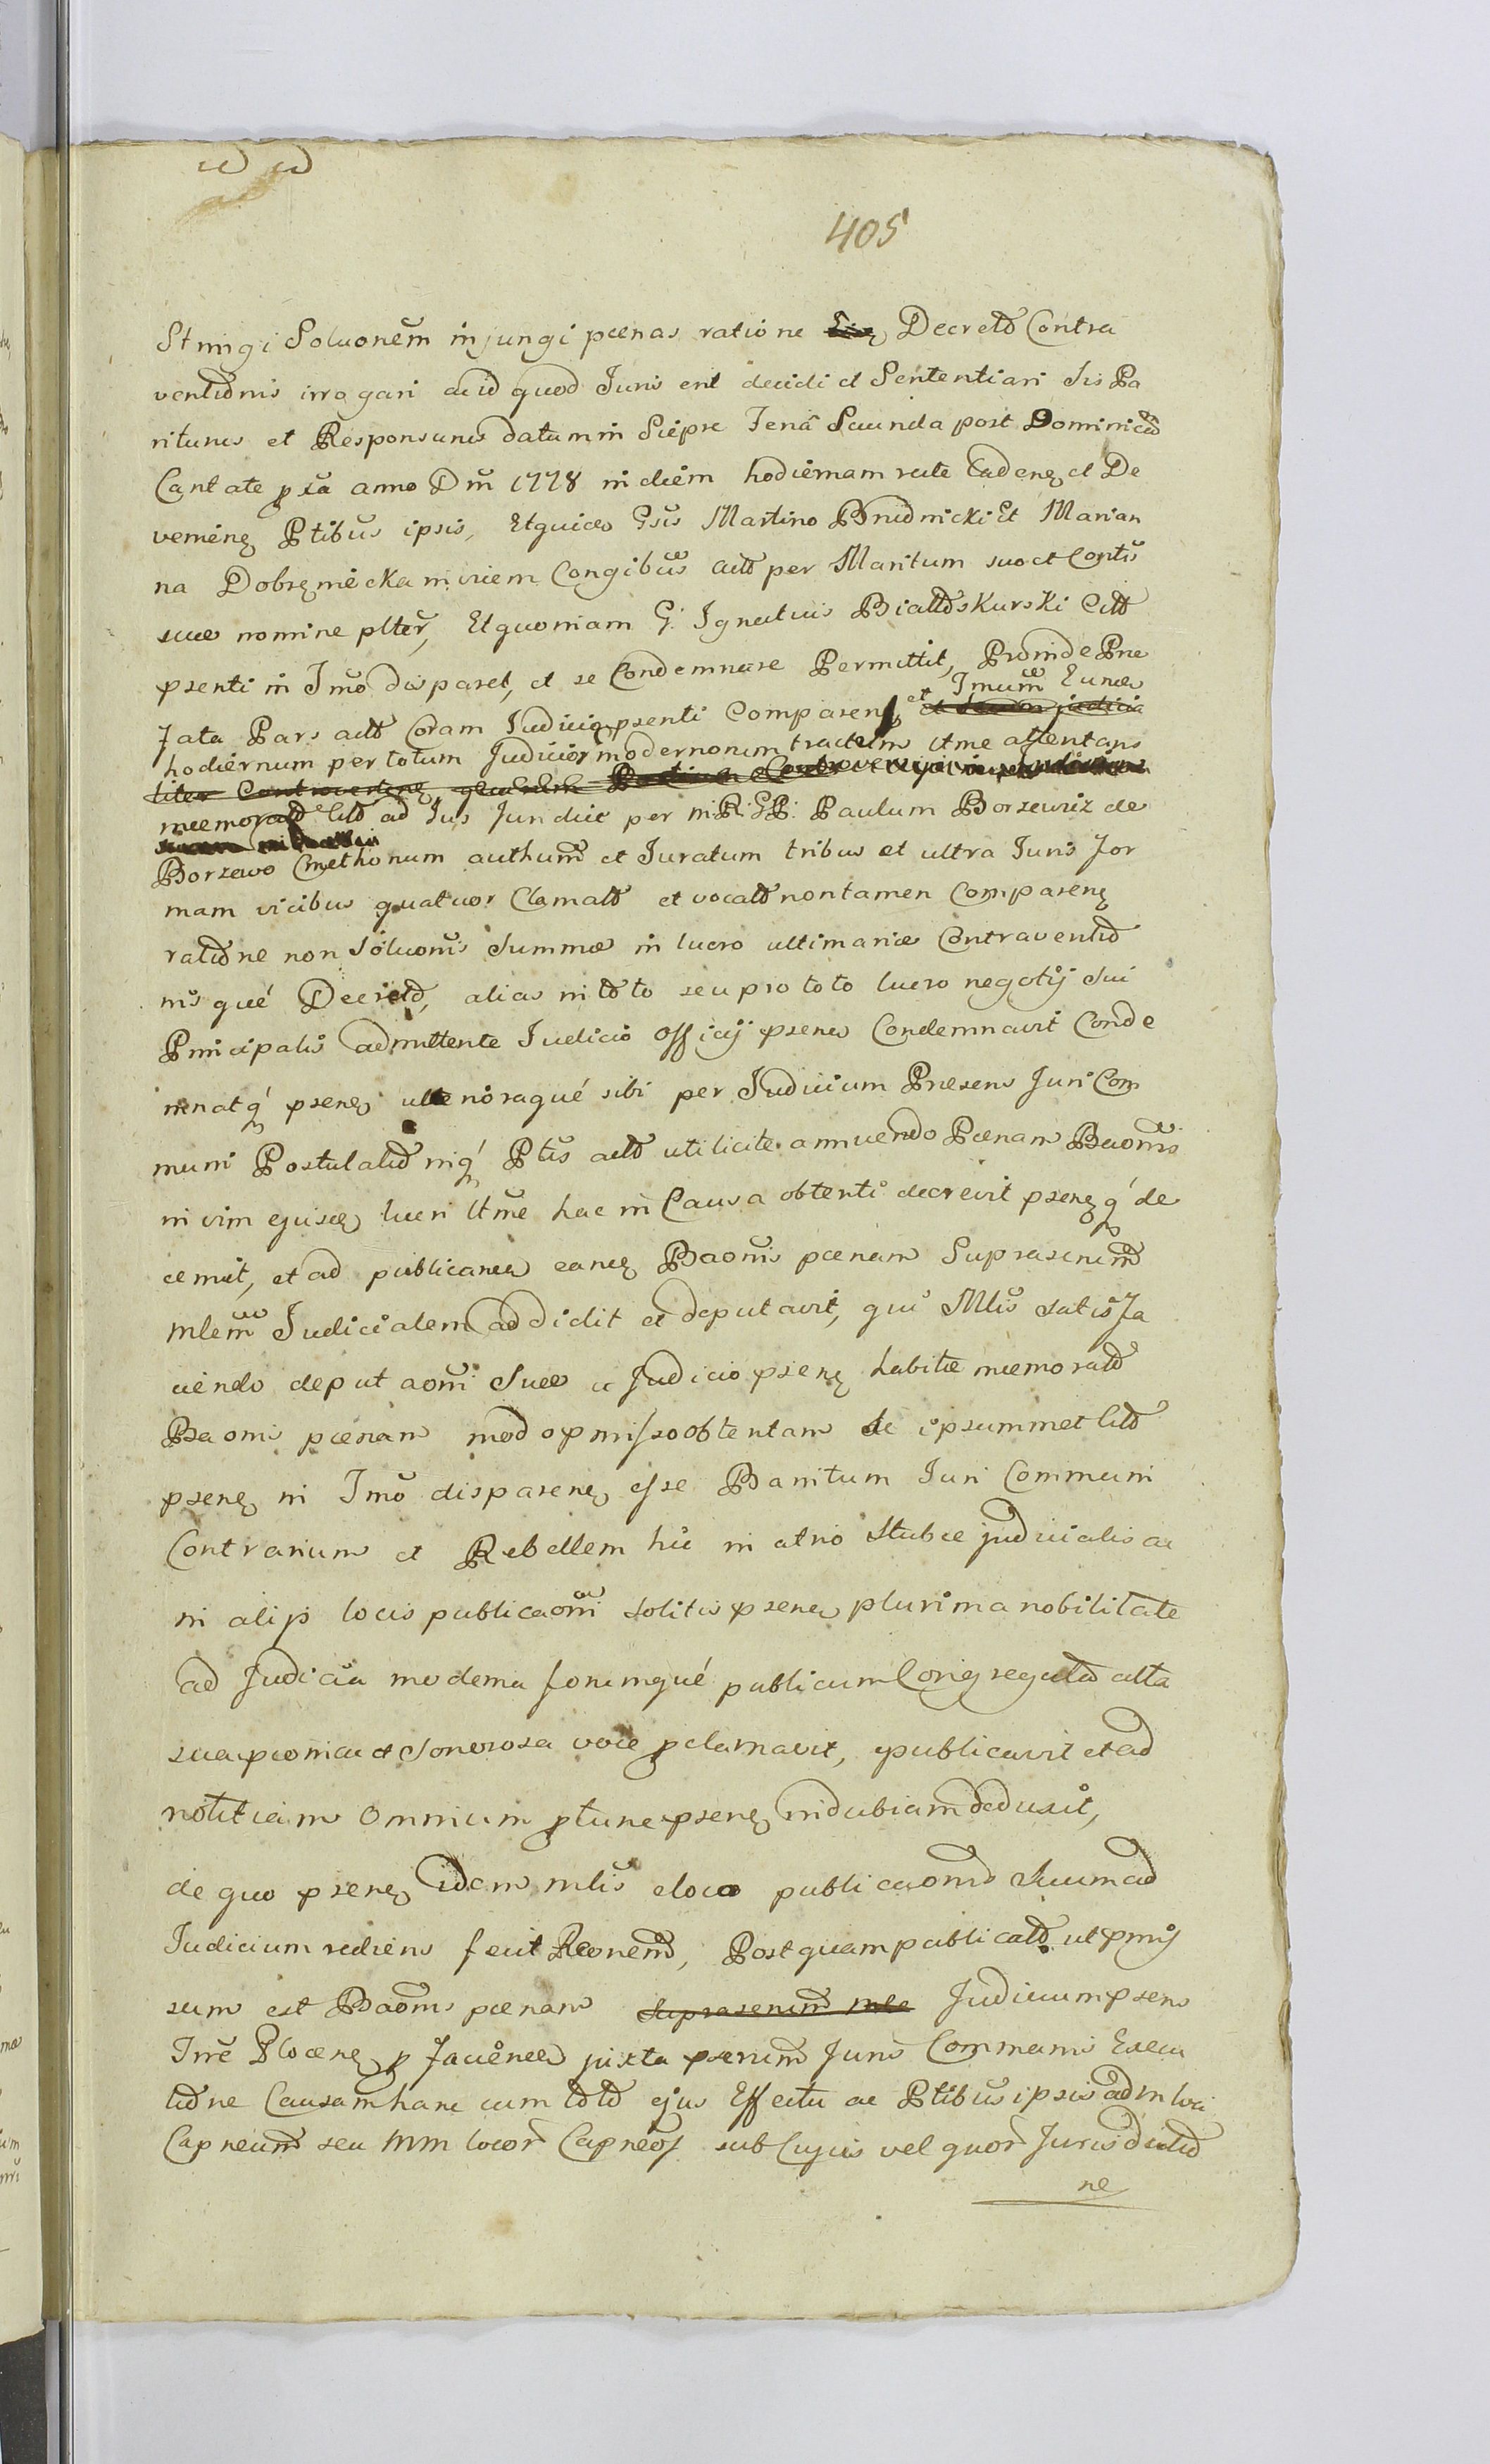 405
Stringi Soluonem injungi pœnas ratione Decreto Contra
ventionis irrogari ac id quod Juris erit decidi et Sententiari Sis Pa
riturus et Responsurus datum in Sieprc Feria Secunda post Dominicam
Cantate pxa anno Dni 1778 in diem hodiernam recte Cadeneq et De
venieneq Ptibus ipsis, Et quideo Gsis Martino Brudnicki Et Marian
na Dobrzmiecka invicem Conqibus actt per Maritum suo et Contis
suæ nomine plter, Et quoniam G. Ignatius Biattoskurski Citt
psenti in Tmo disparet, et se Condemnare Permittit, Proinde Pne
fata Pars actt Coram Judicio psenti Compareneq et Tmum Eunde
hodiernum per totum Judicior modernorum tractum ltme attentans
memoratt Citt ad Jus Juridice per M. R. G. P. Paulum Borzewicz de
Borzewo Cmethonum authum et Juratum tribus et ultra Juris for
mam vicibus quatuor Clamatt et vocatt non tamen Compareneq
ratione non Soluonis Summæ in lucro ultimariæ Contraventio
nisque Decreto, alias in toto seu pro toto lucro negotij Sui
Principalis admittente Judicio Officij pseneq Condemnavit Conde
mnatq pseneq ulterioraque sibi per Judicium Præsens Juri Com
muni Postulationiq Ptis actt utilicite annuendo Pœnam Baonis
in vim ejusdeq lucri ltme hac in Causa obtenti decrevit pseneq q de
cernit, et ad publicandu eandeq Baonis pœnam Suprasenum
Mlem Judicialem addidit et deputavit, qui Mlis Satisfa
ciendo deputaoni Suæ a Judicio pseneq habitæ memoratt
Baonis pœnam modo pmisso obtentam de ipsummet Citt
pseneq in Tmo dispareneq esse Banitum Juri Communi
Contrarium et Rebellem hic in atrio Stubæ judicialis ac
in alijs locis publicaoni solitis pseneq plurima nobilitate
ad Judicia moderna forumque publicum Congregata alta
sua pconica et Sonorosa voce pclamavit, publicavit et ad
notitiam Omnium ptunc pseneq indubiam deduxit,
de quo pseneq idem mlis e loco publicaonis Suum ad
Judicium rediens fecit Reonem, Postquam publicatt ut pmis
sum est Baonis pœnam Suprasenum Judicium psens
Trre Ploceneq p facieneda juxta psenum Juris Communis Execu
tione Causam hanc cum toto ejus Effectu ac Ptibus ipsis ad m loci
Capneum seu Mm locor Capneos sub Cujus vel quor Jurisdictio
ne